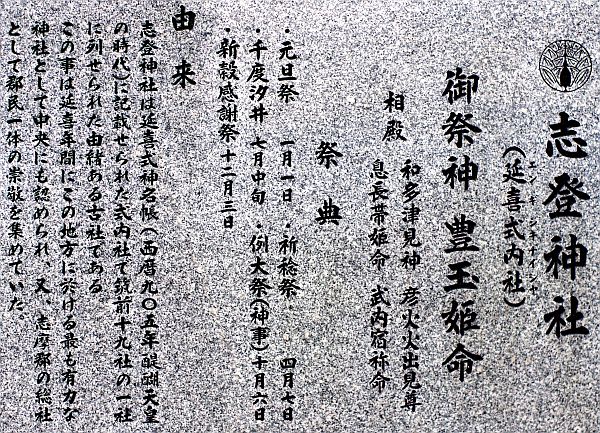 志登神社
(延喜式内社)
エンギシキナイシャ
御祭神 豊玉姫命
相殿 和多津見神 彦火々出見尊
息長帯姫命 武内宿祢命
祭典
・元旦祭 一月一日 ・祈稔祭 四月七日
・千度汐井 七月中旬 ・例大祭(神事)十月六日
・新穀感謝祭 十二月三日
由来
志登神社は延喜式神名帳(西暦九〇五年醍醐天皇
の時代)に記載せられた式内社で筑前十九社の一社
に列せられた由緒ある古社である
この事は延喜年間にこの地方に於ける最も有力な
神社として中央にも認められ、又、志摩郡の総社
として郡民一体の崇敬を集めていた。